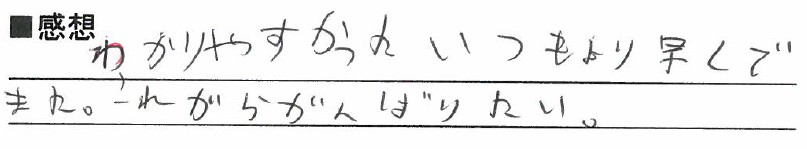 ■感想
わかりやすかった いつもより早くで
きた。これからがんばりたい。